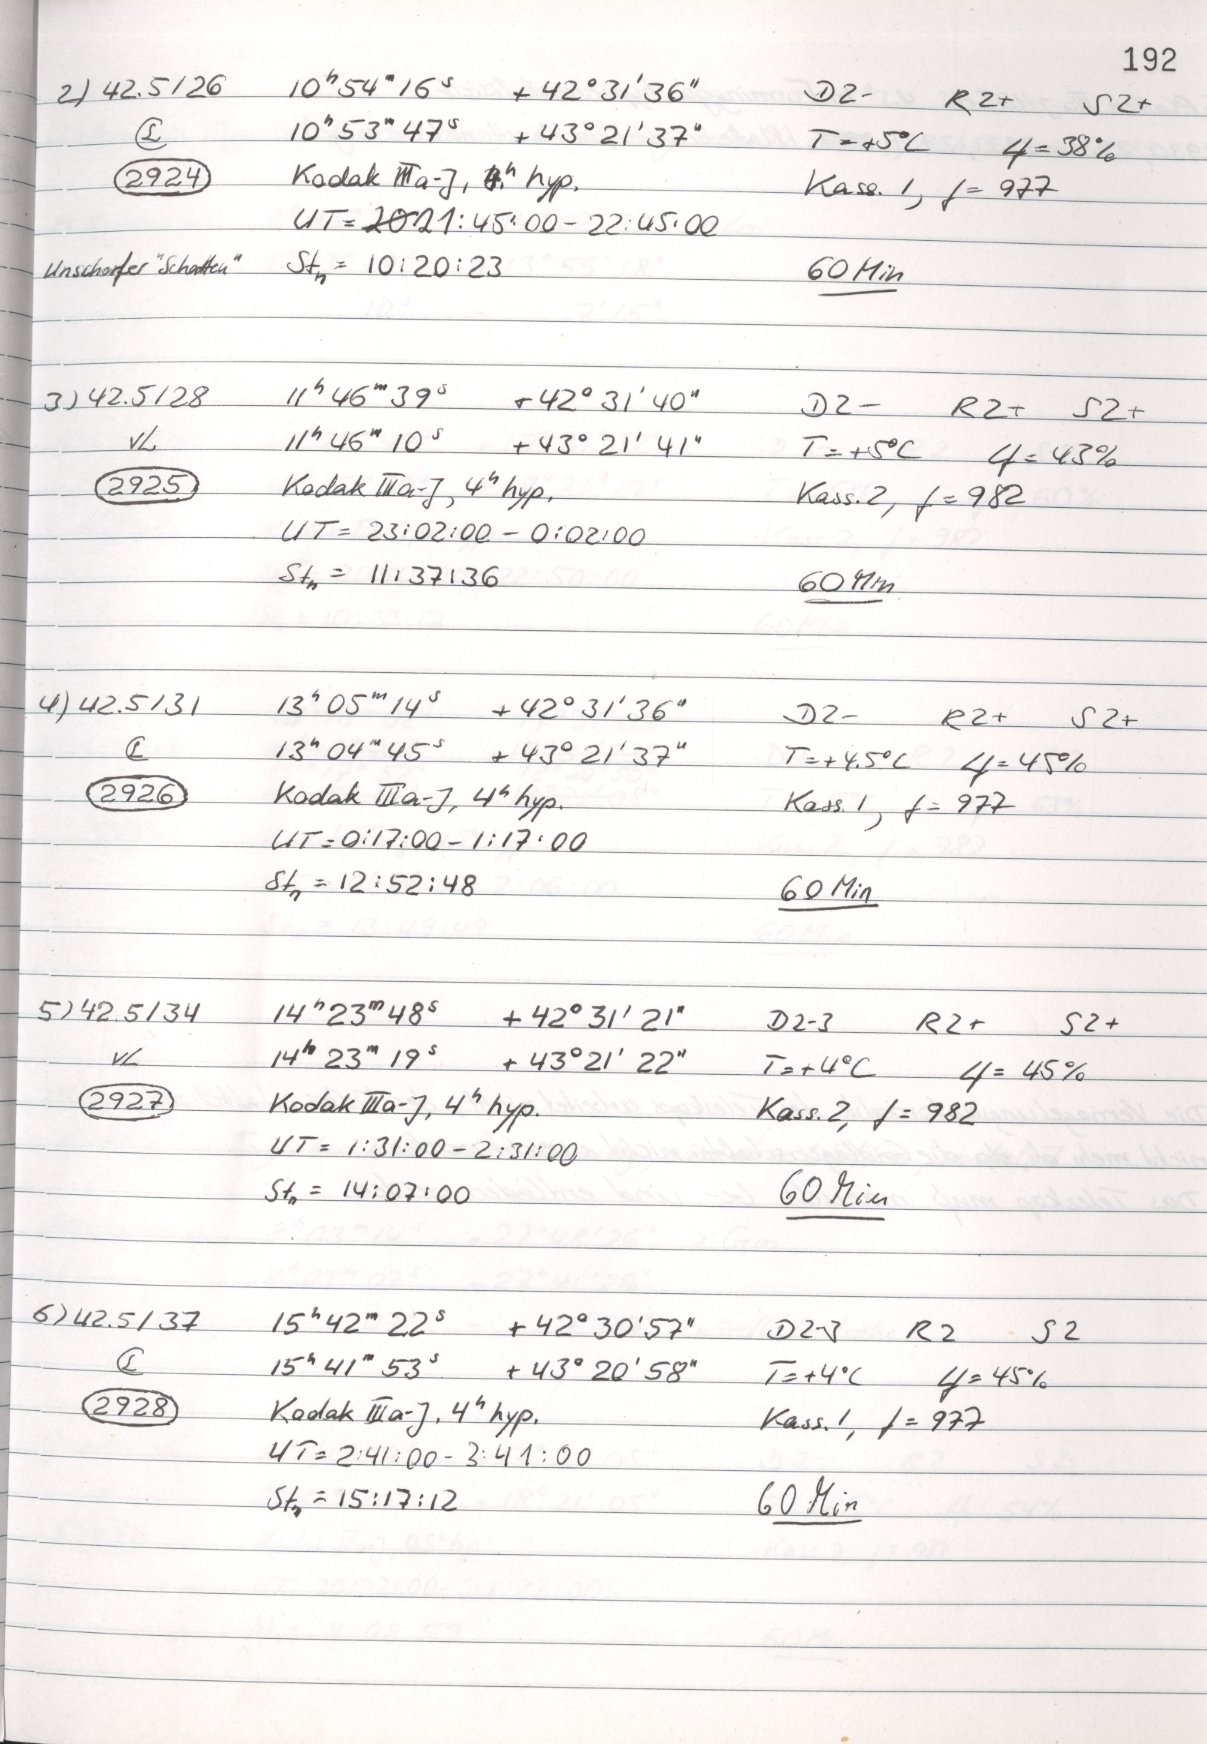 192
2) 42.5/26 10ʰ54ᵐ16ˢ +42°31'36" D2- R2+ S2+
10ʰ53ᵐ47ˢ +43°21'37" T=+5°C φ=38%
2924 Kodak IIIa-J, 4ʰ hyp. Kass. 1, f=977
UT=21:45:00-22:45:00
Unscharfer "Schatten" Stₙ = 10:20:23 60 Min
3) 42.5/28 11ʰ46ᵐ39ˢ +42°31'40" D2- R2+ S2+
vL 11ʰ46ᵐ10ˢ +43°21'41" T=+5°C φ=43%
2925 Kodak IIIa-J, 4ʰ hyp. Kass. 2, f=982
UT=23:02:00-0:02:00
Stₙ = 11:37:36 60 Min
4) 42.5/31 13ʰ05ᵐ14ˢ +42°31'36" D2- R2+ S2+
13ʰ04ᵐ45ˢ +43°21'37" T=+4.5°C φ=45%
2926 Kodak IIIa-J, 4ʰ hyp. Kass. 1, f=977
UT=0:17:00-1:17:00
Stₙ = 12:52:48 60 Min
5) 42.5/34 14ʰ23ᵐ48ˢ +42°31'21" D2-3 R2+ S2+
vL 14ʰ23ᵐ19ˢ +43°21'22" T=+4°C φ=45%
2927 Kodak IIIa-J, 4ʰ hyp. Kass. 2, f=982
UT=1:31:00-2:31:00
Stₙ = 14:07:00 60 Min
6) 42.5/37 15ʰ42ᵐ22ˢ +42°30'57" D2-3 R2 S2
15ʰ41ᵐ53ˢ +43°20'58" T=+4°C φ=45%
2928 Kodak IIIa-J, 4ʰ hyp. Kass. 1, f=977
UT=2:41:00-3:41:00
Stₙ = 15:17:12 60 Min